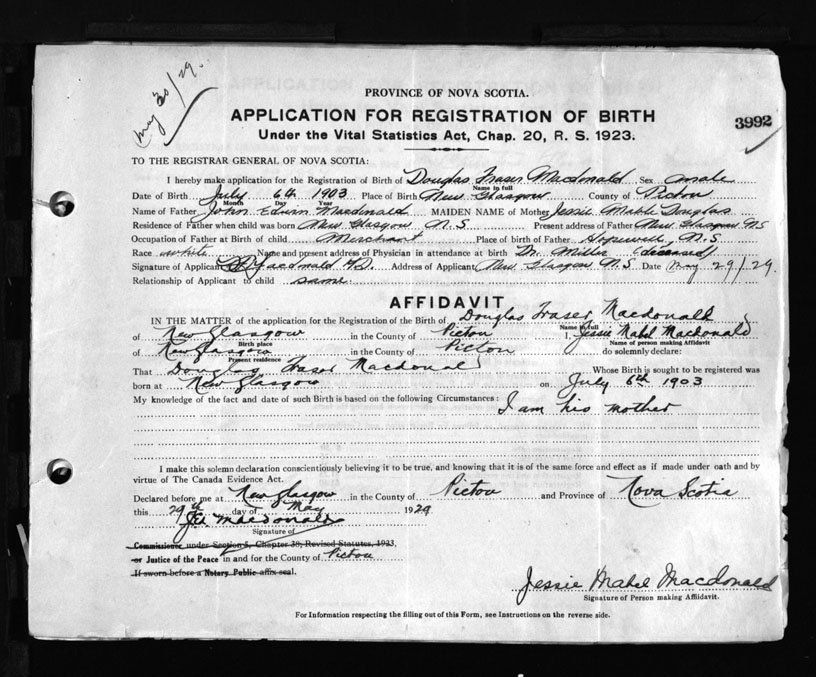 May 30/29.
PROVINCE OF NOVA SCOTIA.
APPLICATION FOR REGISTRATION OF BIRTH
3992
Under the Vital Statistics Act, Chap. 20, R. S. 1923.
TO THE REGISTRAR GENERAL OF NOVA SCOTIA:
I hereby make application for the Registration of Birth of Douglas Fraser Macdonald Sex male
Name in full
Date of Birth July 6th 1903 Place of Birth New Glasgow County of Pictou
Month Day Year
Name of Father John Edwin Macdonald MAIDEN NAME of Mother Jessie Mable Douglas
Residence of Father when child was born New Glasgow N.S Present address of Father New Glasgow NS
Occupation of Father at Birth of child Merchant Place of birth of Father Hopewell, N.S
Race white Name and present address of Physician in attendance at birth Dr. Miller (deceased)
Signature of Applicant Macdonald M.D. Address of Applicant New Glasgow N.S Date May 29/29.
Relationship of Applicant to child same
AFFIDAVIT
IN THE MATTER of the application for the Registration of the Birth of Douglas Fraser Macdonald
Name in full
of New Glasgow in the County of Pictou I, Jessie Mabel Macdonald
Birth place Name of person making Affidavit
of New Glasgow in the County of Pictou do solemnly declare:
Present residence
That Douglas Fraser Macdonald Whose Birth is sought to be registered was
born at New Glasgow on July 6th 1903
My knowledge of the fact and date of such Birth is based on the following Circumstances: I am his mother
I make this solemn declaration conscientiously believing it to be true, and knowing that it is of the same force and effect as if made under oath and by
virtue of The Canada Evidence Act.
Declared before me at New Glasgow in the County of Pictou and Province of Nova Scotia
this 29th day of May 1929
Macdonald
Signature of
Commissioner under Section 5, Chapter 38, Revised Statutes, 1923,
or Justice of the Peace in and for the County of Pictou
If sworn before a Notary Public affix seal.
Jessie Mabel Macdonald
Signature of Person making Affidavit.
For Information respecting the filling out of this Form, see Instructions on the reverse side.